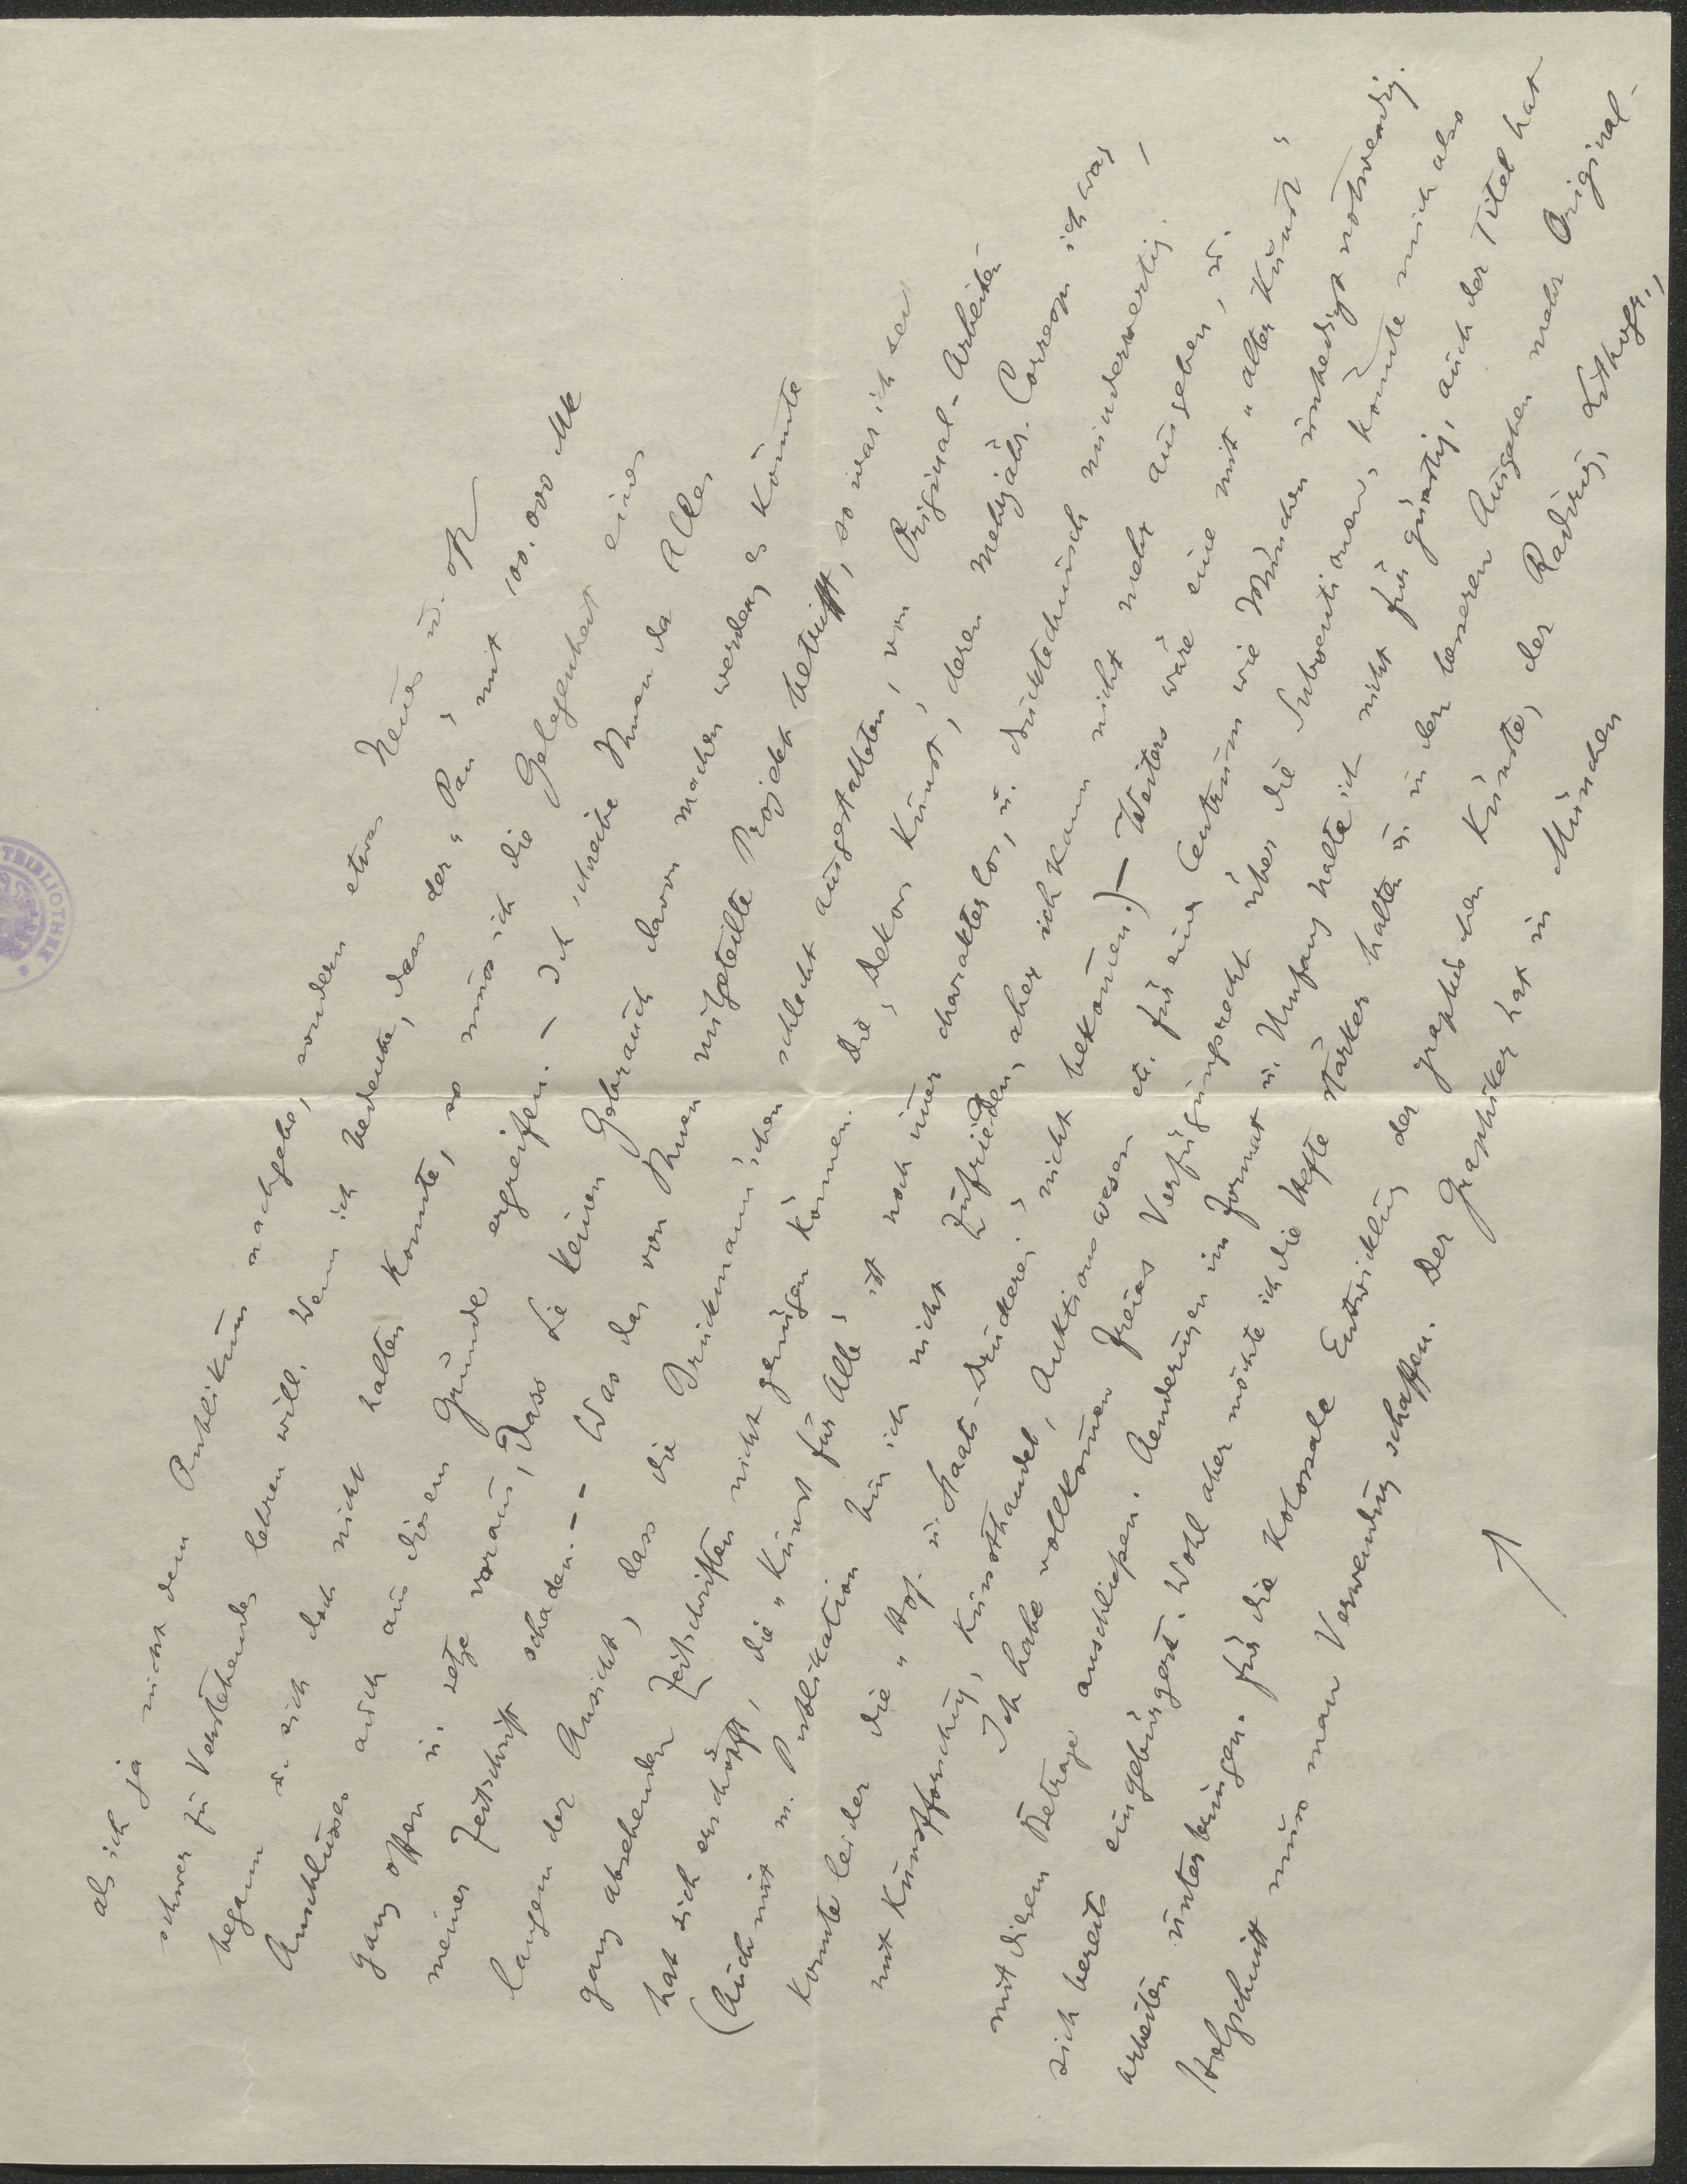 als ich ja nicht dem Publikum nachgebe, sondern etwas Neues u. oft
schwer zu Verstehendes lehren will. Wenn ich bedenke, dass der „Pan" mit 100.000 Mk
begann u. sich doch nicht halten konnte, so muss ich die Gelegenheit eines
Anschlusses auch aus diesem Grunde ergreifen. – Ich schreibe Ihnen da Alles
ganz offen u. setze voraus, dass Sie keinen Gebrauch davon machen werden, es könnte
meiner Zeitschrift schaden. – – Was das von Ihnen mitgeteilte Projekt betrifft, so war ich seit
langem der Ansicht, dass die Bruckmann'schen schlecht ausgestatteten, von Original-Arbeiten
ganz absehenden Zeitschriften nicht genügen können. Die „Dekor. Kunst", deren mehrjähr. Corresp. ich war,
hat sich erschöpft, die „Kunst für Alle" ist noch immer charakterlos, u. drucktechnisch minderwertig. –
(Auch mit m. Publikation bin ich nicht zufrieden, aber ich kann nicht mehr ausgeben, u.
konnte leider die „Hof- u. Staats-Druckerei" nicht bekommen.) – Weiters wäre eine mit „alter Kunst",
mit Kunstforschung, Kunsthandel, Auktionswesen etc. für ein Centrum wie München unbedingt notwendig.
Ich habe vollkommen freies Verfügungsrecht über die Subventionen, könnte mich also
mit diesem Betrage anschliessen. Aenderungen im Format u. Umfang halte ich nicht für günstig, auch der Titel hat
sich bereits eingebürgert. Wohl aber möchte ich die Hefte stärker halten u. in der besseren Ausgaben mehr Original-
arbeiten unterbringen. Für die kolossale Entwicklung der graphischen Künste, der Radirung, Lithogr.,
Holzschnitt muss man Verwendung schaffen. Der Graphiker hat in München